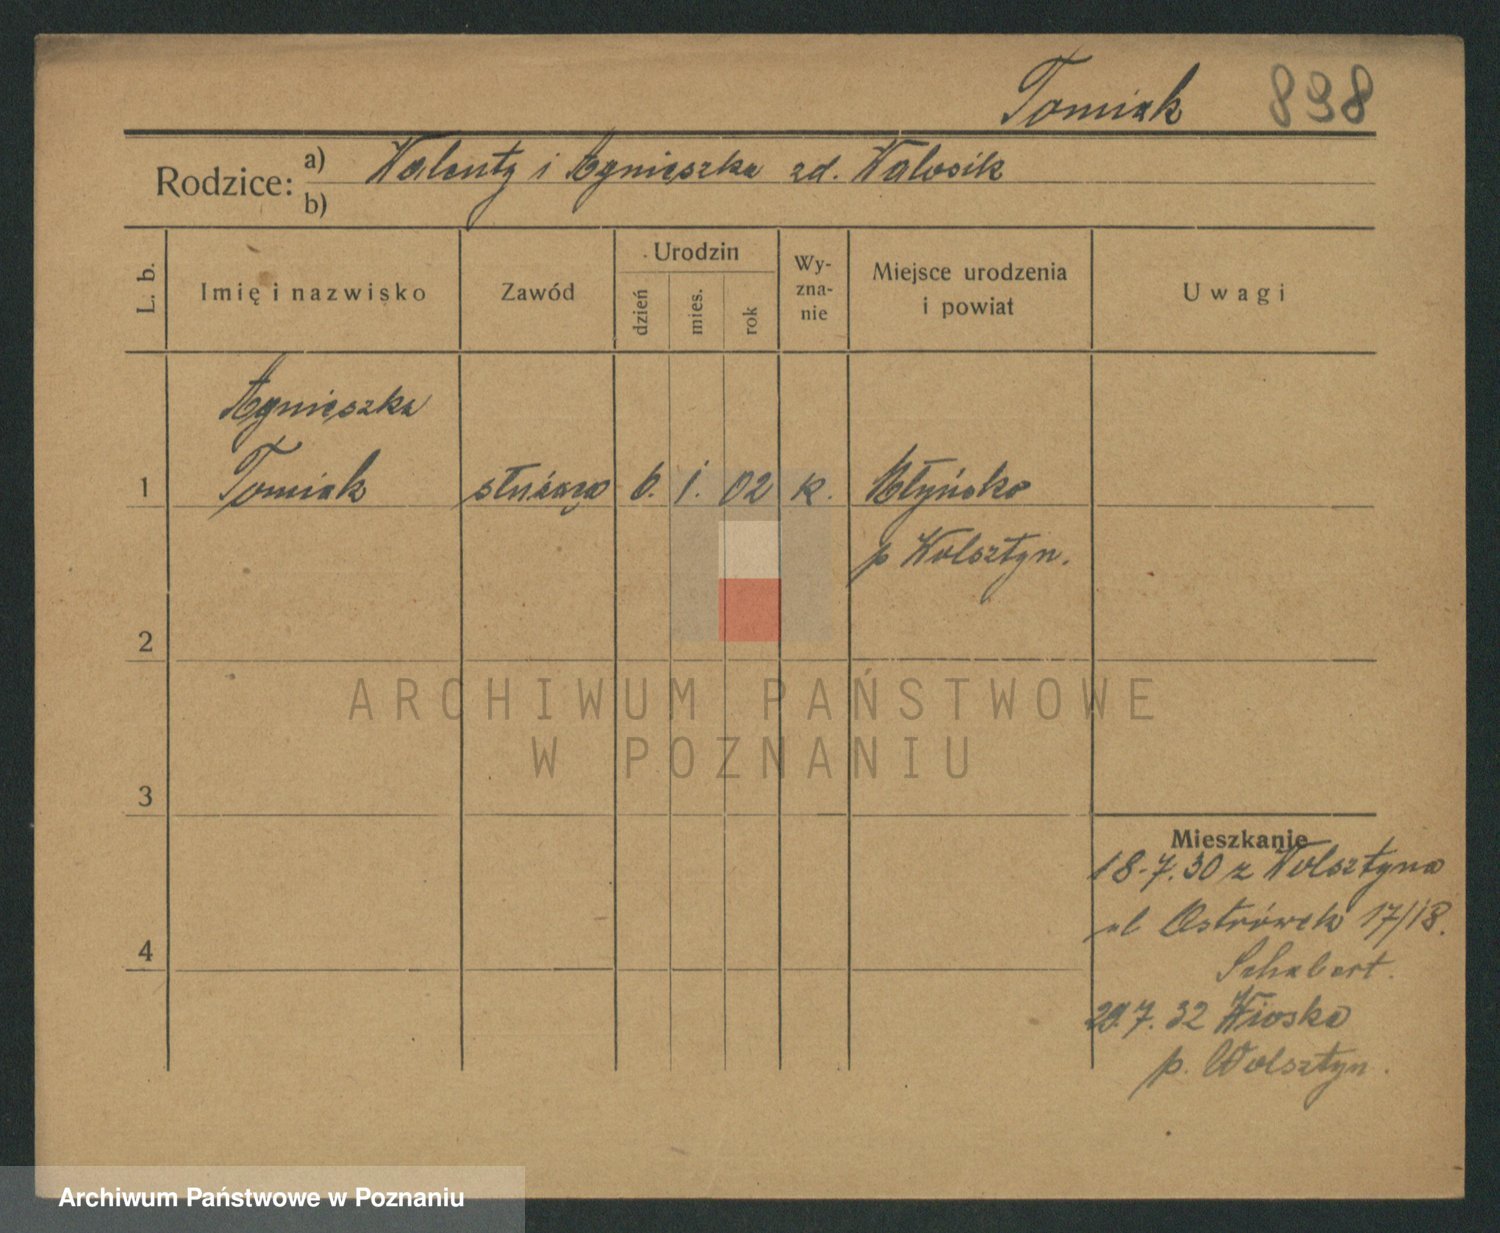 Tomiak 898
Rodzice:
a) Walenty i Agnieszka zd. Walosik
b)
L. b.
Imię i nazwisko
Zawód
Urodzin
dzień
mies.
rok
Wy-
zna-
nie
Miejsce urodzenia
i powiat
Uwagi
Agnieszka
1 Tomiak służąca 6. 1. 02 k. Młyńsko
p Wolsztyn.
2
3
4
Mieszkanie
18-7.30 z Wolsztyna
ul Ostrówek 17/18.
Schabert.
29.7.32 Wioska
p. Wolsztyn.
ARCHIWUM PAŃSTWOWE
W POZNANIU
Archiwum Państwowe w Poznaniu